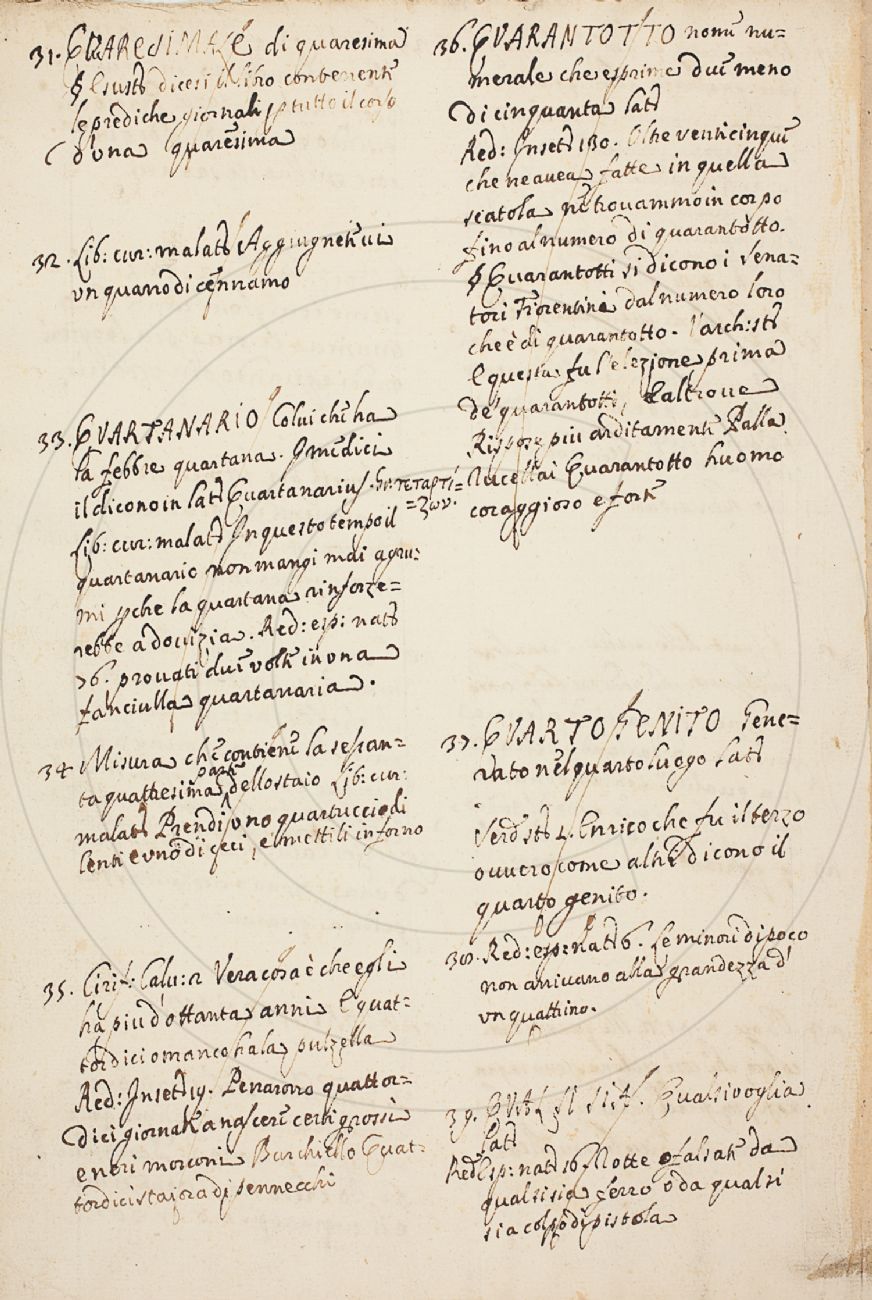 31. QUARESIMALE di quaresima
§ E sustᵒ dicesi il libro contenente
le prediche giornali p tutto il corso
d'una quaresima
32. Lib: cur: malatᵗ Aggiugnete vi
vn quarro di cennamo
33. QVARTANARIO Colui che ha
la febbre quartana. I medici
il dicono in latᵒ Quartanarius. ὁ τεταρτί-
=ζων.
Lib: cur: malatᵗ In questo tempo il
quartanario non mangi mai agru=
mi pche la quartana rinforze=
rebbe a dovizia. Red: esp: natᵗ
76. provati due volte in vna
fanciulla quartanaria.
34 Misura che contiene la sessan=
ta quattresima parte dello staio Lib: cur:
malatᵗ Prendi vno quartuccio di
lenti e vno di ceci, e mettili in forno
35. Cirif: Calu: 2 Vera cosa è che egli
ha piu d'ottanta anni E quat=
tordici o manco ha la pulzella
Red: Insetᵗ 19. Penarono quattor=
dici giornate a nascere certi grossi
e neri mosconi Burchiello Quat=
tordici staiora di pennecchi
36. QVARANTOTTO nome nu=
merale che esprime due meno
di cinquanta latᵒ
Red: Insetᵗ 130. Oltre venticinque
che ne avea fatte in quella
scatola ne trovammo in corpo
fino al numero di quarantotto.
§ Quarantotti si dicono i Sena=
tori Fiorentini dal numero loro
che è di quarantotto. Varch: stᵒ
E questa fu l'elezione prima
de' quarantotti, E altrove
Rispose piu arditamente Palla
Rucellai Quarantotto huomo
coraggioso e forte
37. QVARTOGENITO Gene=
rato nel quarto luogo Latᵒ
Serdᵗ stᵒ 4. Enrico che fu il terzo
ouuero come altri dicono il
quarto genito.
38. Red: esp: natᵗ 6. Le minori di poco
non arrivano alla grandezza d'
vn quattrino.
39. QVALSISIA. Qualsivoglia
Latᵒ
Red Esp: natᵗ 16 flotte o falsate da
qualsisia ferro o da qualsi
sia colpo di pistola